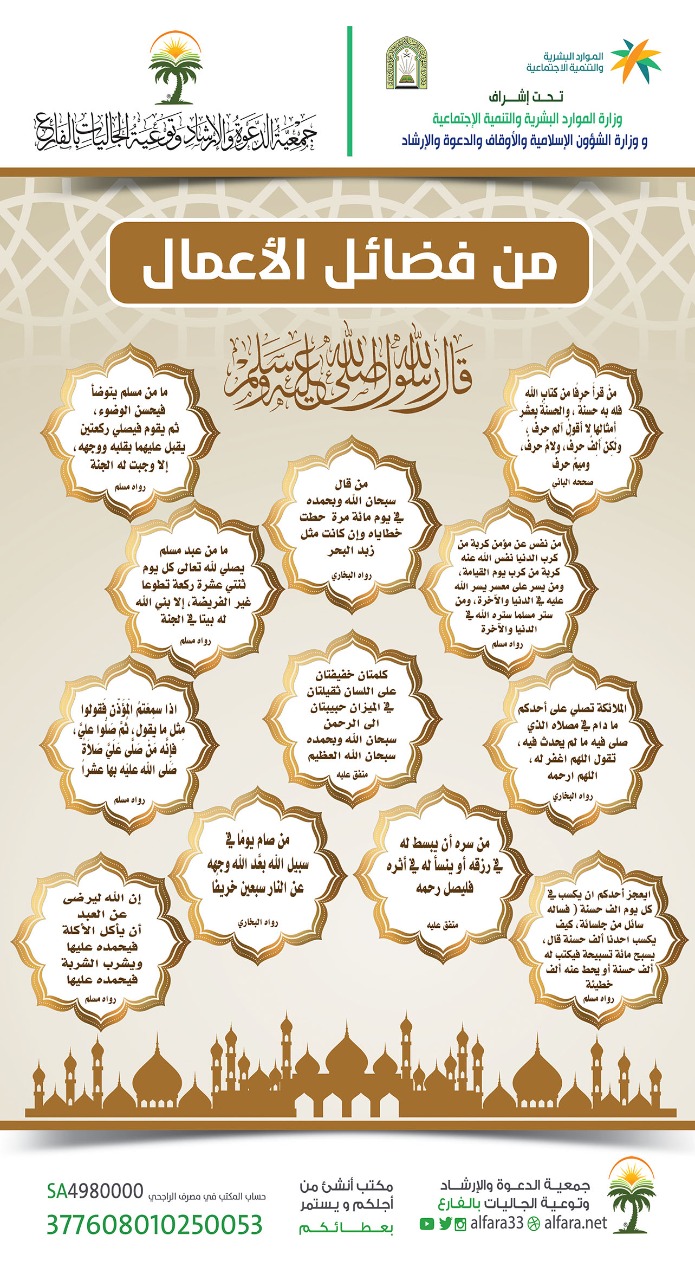 الموارد البشرية
والتنمية الاجتماعية
تحت إشراف
وزارة الموارد البشرية والتنمية الإجتماعية
و وزارة الشؤون الإسلامية والأوقاف والدعوة والإرشاد
جمعية الدعوة والإرشاد وتوعية الجاليات بالفارع
من فضائل الأعمال
قال رسول الله صلى الله عليه وسلم
من قرأ حرفا من كتاب الله
فله به حسنة ، والحسنة بعشر
أمثالها لا أقول الم حرف ،
ولكن ألف حرف، ولام حرف،
وميم حرف
صححه الباني
ما من مسلم يتوضأ
فيحسن الوضوء ،
ثم يقوم فيصلي ركعتين
يقبل عليهما بقلبه ووجهه ،
إلا وجبت له الجنة
رواه مسلم
من قال
سبحان الله وبحمده
في يوم مائة مرة حطت
خطاياه وإن كانت مثل
زبد البحر
رواه البخاري
من نفس عن مؤمن كربة من
كرب الدنيا نفس الله عنه
كربة من كرب يوم القيامة،
ومن يسر على معسر يسر الله
عليه في الدنيا والآخرة ، ومن
ستر مسلما ستره الله في
الدنيا والآخرة
رواه مسلم
ما من عبد مسلم
يصلي لله تعالى كل يوم
ثنتي عشرة ركعة تطوعا
غير الفريضة، إلا بنى الله
له بيتا في الجنة
رواه مسلم
كلمتان خفيفتان
على اللسان ثقيلتان
في الميزان حبيبتان
الى الرحمن
سبحان الله وبحمده
سبحان الله العظيم
متفق عليه
الملائكة تصلي على أحدكم
ما دام في مصلاه الذي
صلى فيه ما لم يحدث فيه ،
تقول اللهم اغفر له ،
اللهم ارحمه
رواه البخاري
اذا سمعتم المؤذن فقولوا
مثل ما يقول، ثم صلوا علي،
فإنه من صلى علي صلاة
صلى الله عليه بها عشرا
رواه مسلم
من سره أن يبسط له
في رزقه أو ينسأ له في أثره
فليصل رحمه
متفق عليه
من صام يوما في
سبيل الله بعّد الله وجهه
عن النار سبعين خريفا
رواه البخاري
ايعجز أحدكم ان يكسب في
كل يوم الف حسنة ( فساله
سائل من جلسائة، كيف
يكسب احدنا ألف حسنة قال،
يسبح مائة تسبيحة فيكتب له
ألف حسنة أو يحط عنه ألف
خطيئة
رواه مسلم
إن الله ليرضى
عن العبد
أن يأكل الأكلة
فيحمده عليها
ويشرب الشربة
فيحمده عليها
رواه مسلم
جمعية الدعوة والإرشاد
وتوعية الجاليات بالفارع
alfara33 alfara.net
مكتب أنشئ من
أجلكم و يستمر
بعطائكم
حساب المكتب في مصرف الراجحي SA4980000
377608010250053